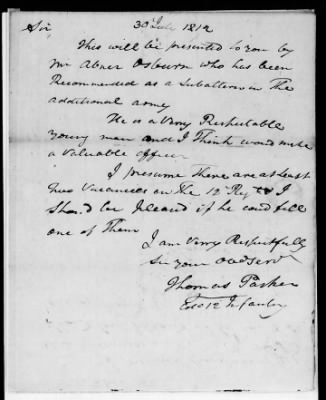 Sir, 30 July 1812
This will be presented to you by
Mr Abner Osburn who has been
Recommended as a Subaltern in The
additional army
He is a Very Respectable
young man and I Think would make
a valuable officer
I presume There are at least
two Vacancies in The 12 Regt & I
Should be pleased if he could fill
one of Them
I am Very Respectfully
Sir your Obd Serv
Thomas Parker
12 Infantry